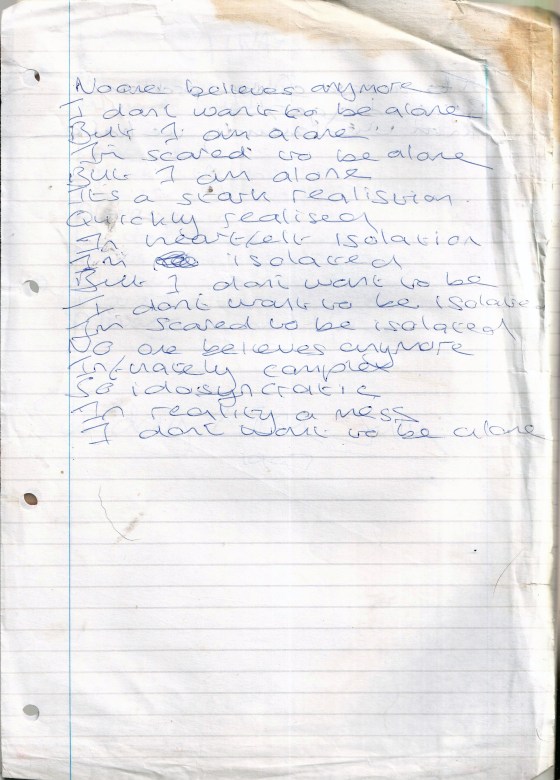 Noone believes anymore
I dont want to be alone
But I am alone
I'm scared to be alone
But I am alone
It's a stark realistion.
Quickly realised
In heartfelt isolation
I'm isolated
But I dont want to be
I dont want to be isolate
I'm scared to be isolated
No one believes anymore
Intricately complex
So idosyncratic
In reality a mess
I dont want to be alone